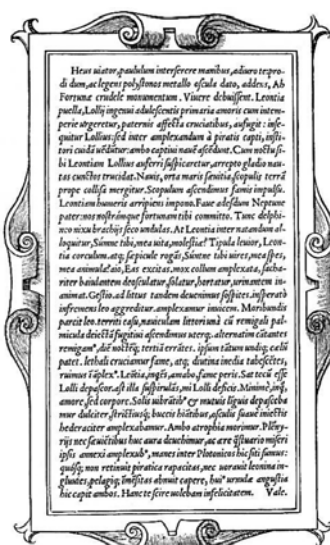 Heus uiator, paululum interserere manibus, adiuro te prodi
dum, ac legens polystonos metallo oscula dato, addens, Ah
Fortunæ crudele monumentum. Viuere debuissent. Leontia
puella, Lollij ingenui adulescentis primaria amoris cum intem-
perie urgeretur, paternis affecta cruciatibus, aufugit: inse-
quitur Lollius: sed inter amplexandum à piratis capti, insti-
tori cuidā uēdūtur: ambo captiui nauē ascēdunt. Cum noctu si-
bi Leontiam Lollius auferri suspicaretur, arrepto gladio nau-
tas cunctos trucidat. Nauis, orta maris sæuitia, scopulis terrā
prope collisa mergitur. Scopulum ascendimus famis impulsu.
Leontiam humeris arripiens impono. Faue adesdum Neptune
pater: nos nostrámque fortunam tibi committo. Tunc delphi-
neo nixu brachijs seco undulas. At Leontia inter natandum al-
loquitur, Súmne tibi, mea uita, molestia? Tipula leuior, Leon-
tia corculum. atq; sæpicule rogās, Súntne tibi uires, mea spes,
mea animula? aio, Eas excitas. mox collum amplexata, suaha-
riter baiulantem deosculatur, solatur, hortatur, urinantem in-
animat. Gestio. ad littus tandem deuenimus sospites. insperatò
infremens leo aggreditur. amplexamur inuicem. Moribundis
parcit leo. territi casu, nauiculam littori unà cū remigali pal-
micula deiectā fugitiui ascendimus uterq; alternatim cātantes
remigam<sup>9</sup>. diē noctēq; tertiā errātes. ipsum tātum undiq; cælū
patet. lethali cruciamur fame, atq; diutina inedia tabescētes,
ruimus ī āplex<sup>9</sup>. Leōtia, inqēs, amabo, fame peris. Sat tecū esse
Lolli depascor. ast illa suspirulās, mi Lolli deficis. Minimè, inq̄,
amore, sed corpore. Solis uibrātib<sup>9</sup> & mutuis līguis depasceba
mur dulciter, strictiúsq; buccis hiātibus, osculis suauè iniectis
hederaciter amplexabamur. Ambo atrophia morimur. Plēmy-
rijs nec sæuiētibus huc aura deuehimur, ac ære q̄stuario miseri
ipsis annexi amplexub<sup>9</sup>, manes inter Plotonicos hic siti sumus:
quósq; non retinuit piratica rapacitas, nec uorauit leonina in-
gluuies, pelagíq; īmēsitas abnuit capere, hui<sup>9</sup> urnulæ angustia
hic capit ambos. Hanc te scire uolebam infelicitatem. Vale.